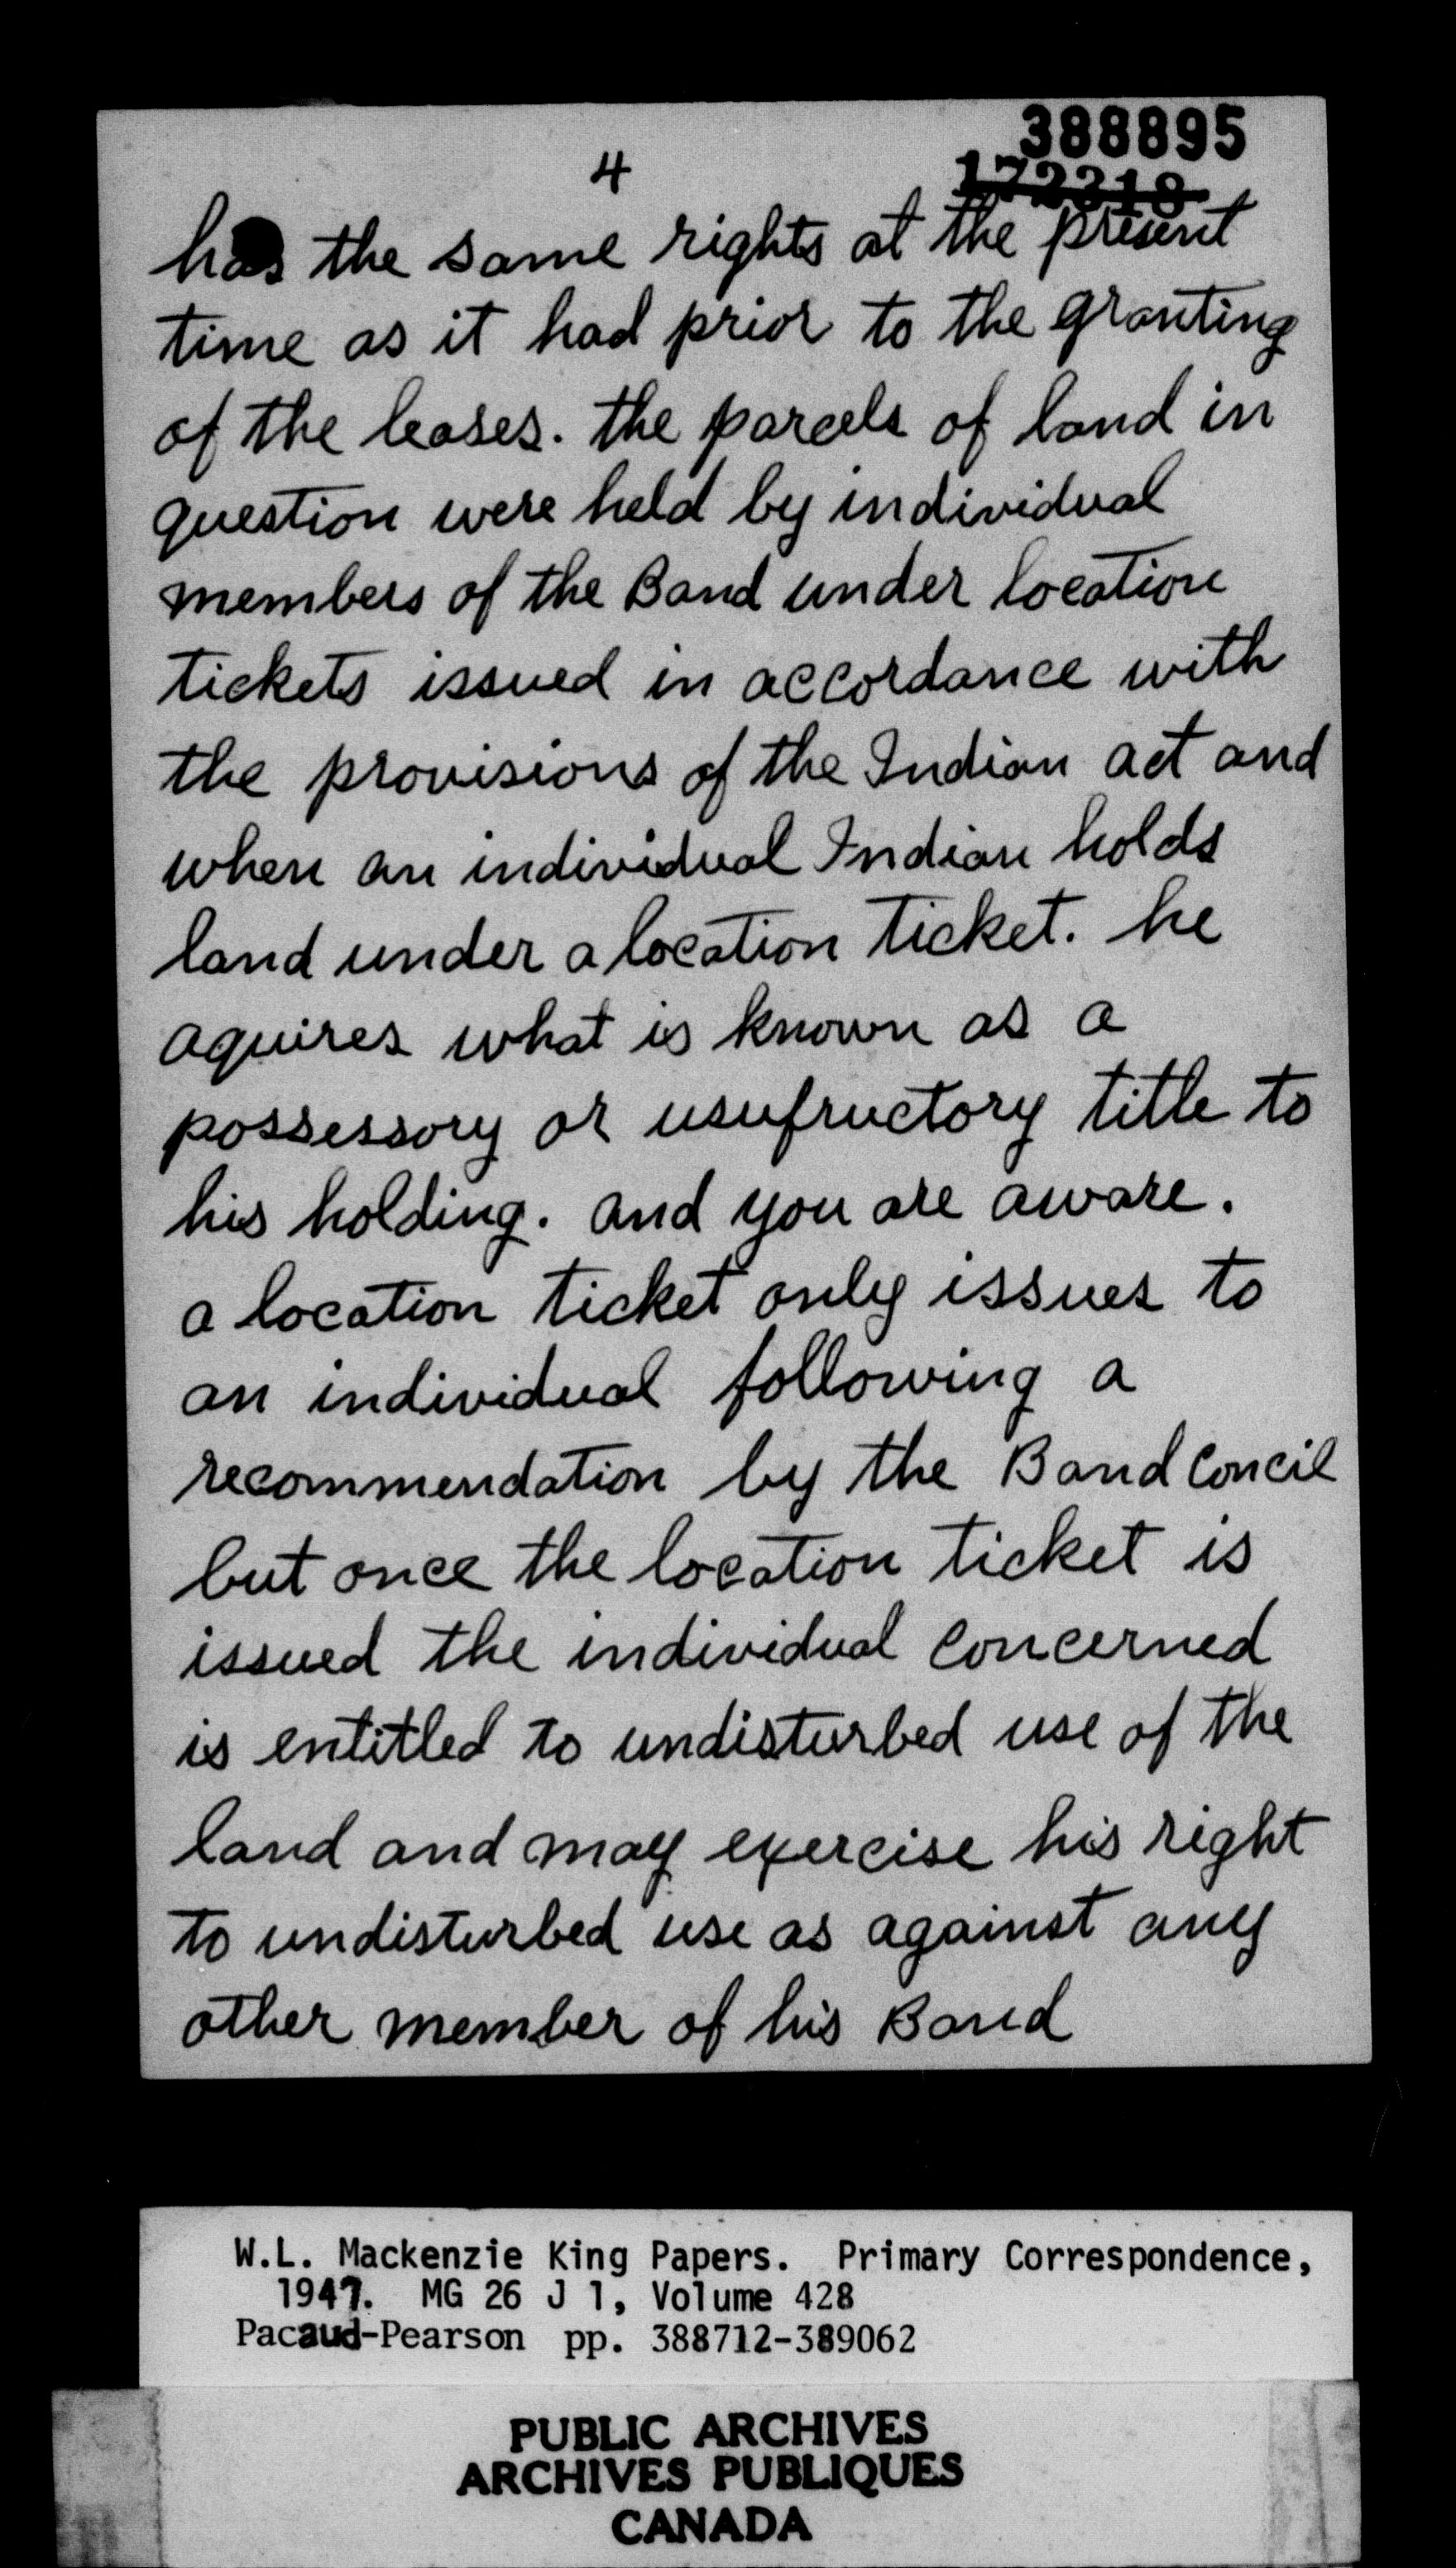 388895
4
172318
has the same rights at the present
time as it had prior to the granting
of the leases. the parcels of land in
question were held by individual
members of the Band under location
tickets issued in accordance with
the provisions of the Indian act and
when an individual Indian holds
land under a location ticket. he
aquires what is known as a
possessory or usufructory title to
his holding. and you are aware.
a location ticket only issues to
an individual following a
recommendation by the Band Concil
but once the location ticket is
issued the individual concerned
is entitled to undisturbed use of the
land and may exercise his right
to undisturbed use as against any
other member of his Band
W.L. Mackenzie King Papers. Primary Correspondence,
1947. MG 26 J 1, Volume 428
Pacaud-Pearson pp. 388712-389062
PUBLIC ARCHIVES
ARCHIVES PUBLIQUES
CANADA